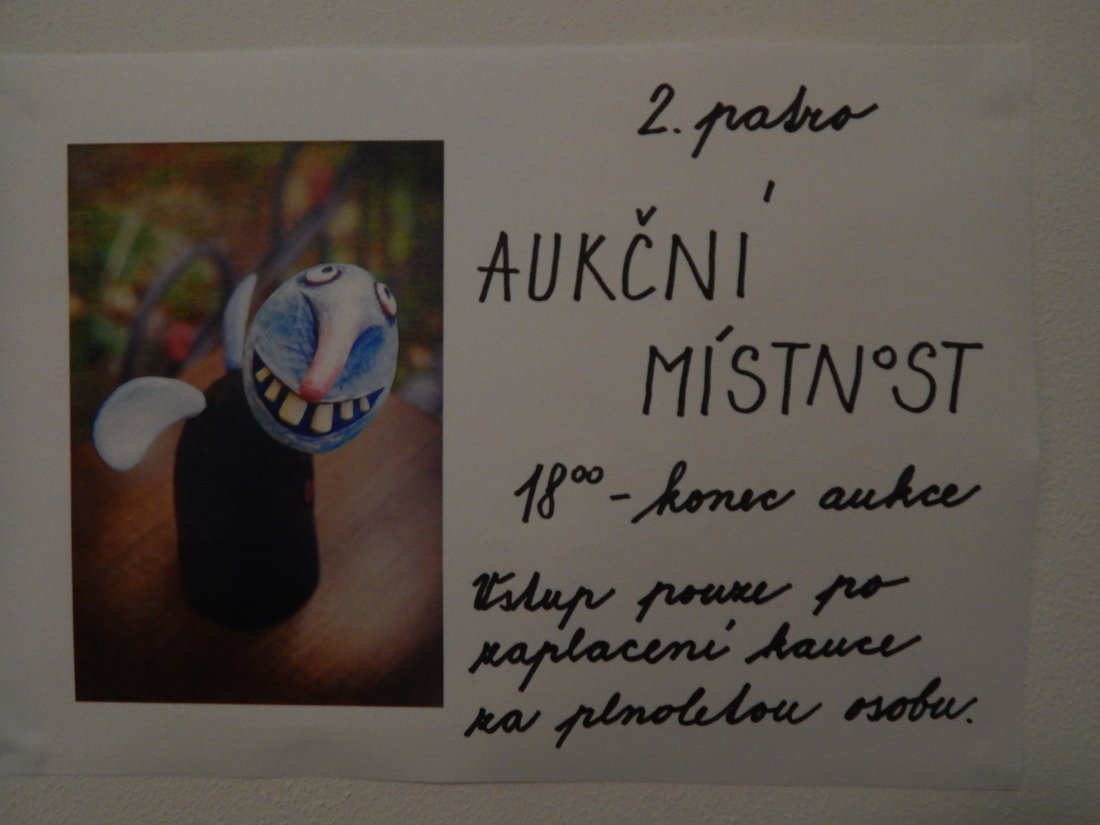 2. patro
AUKČNÍ
MÍSTNOST
18⁰⁰ - konec aukce
Vstup pouze po
zaplacení kauce
za plnoletou osobu.